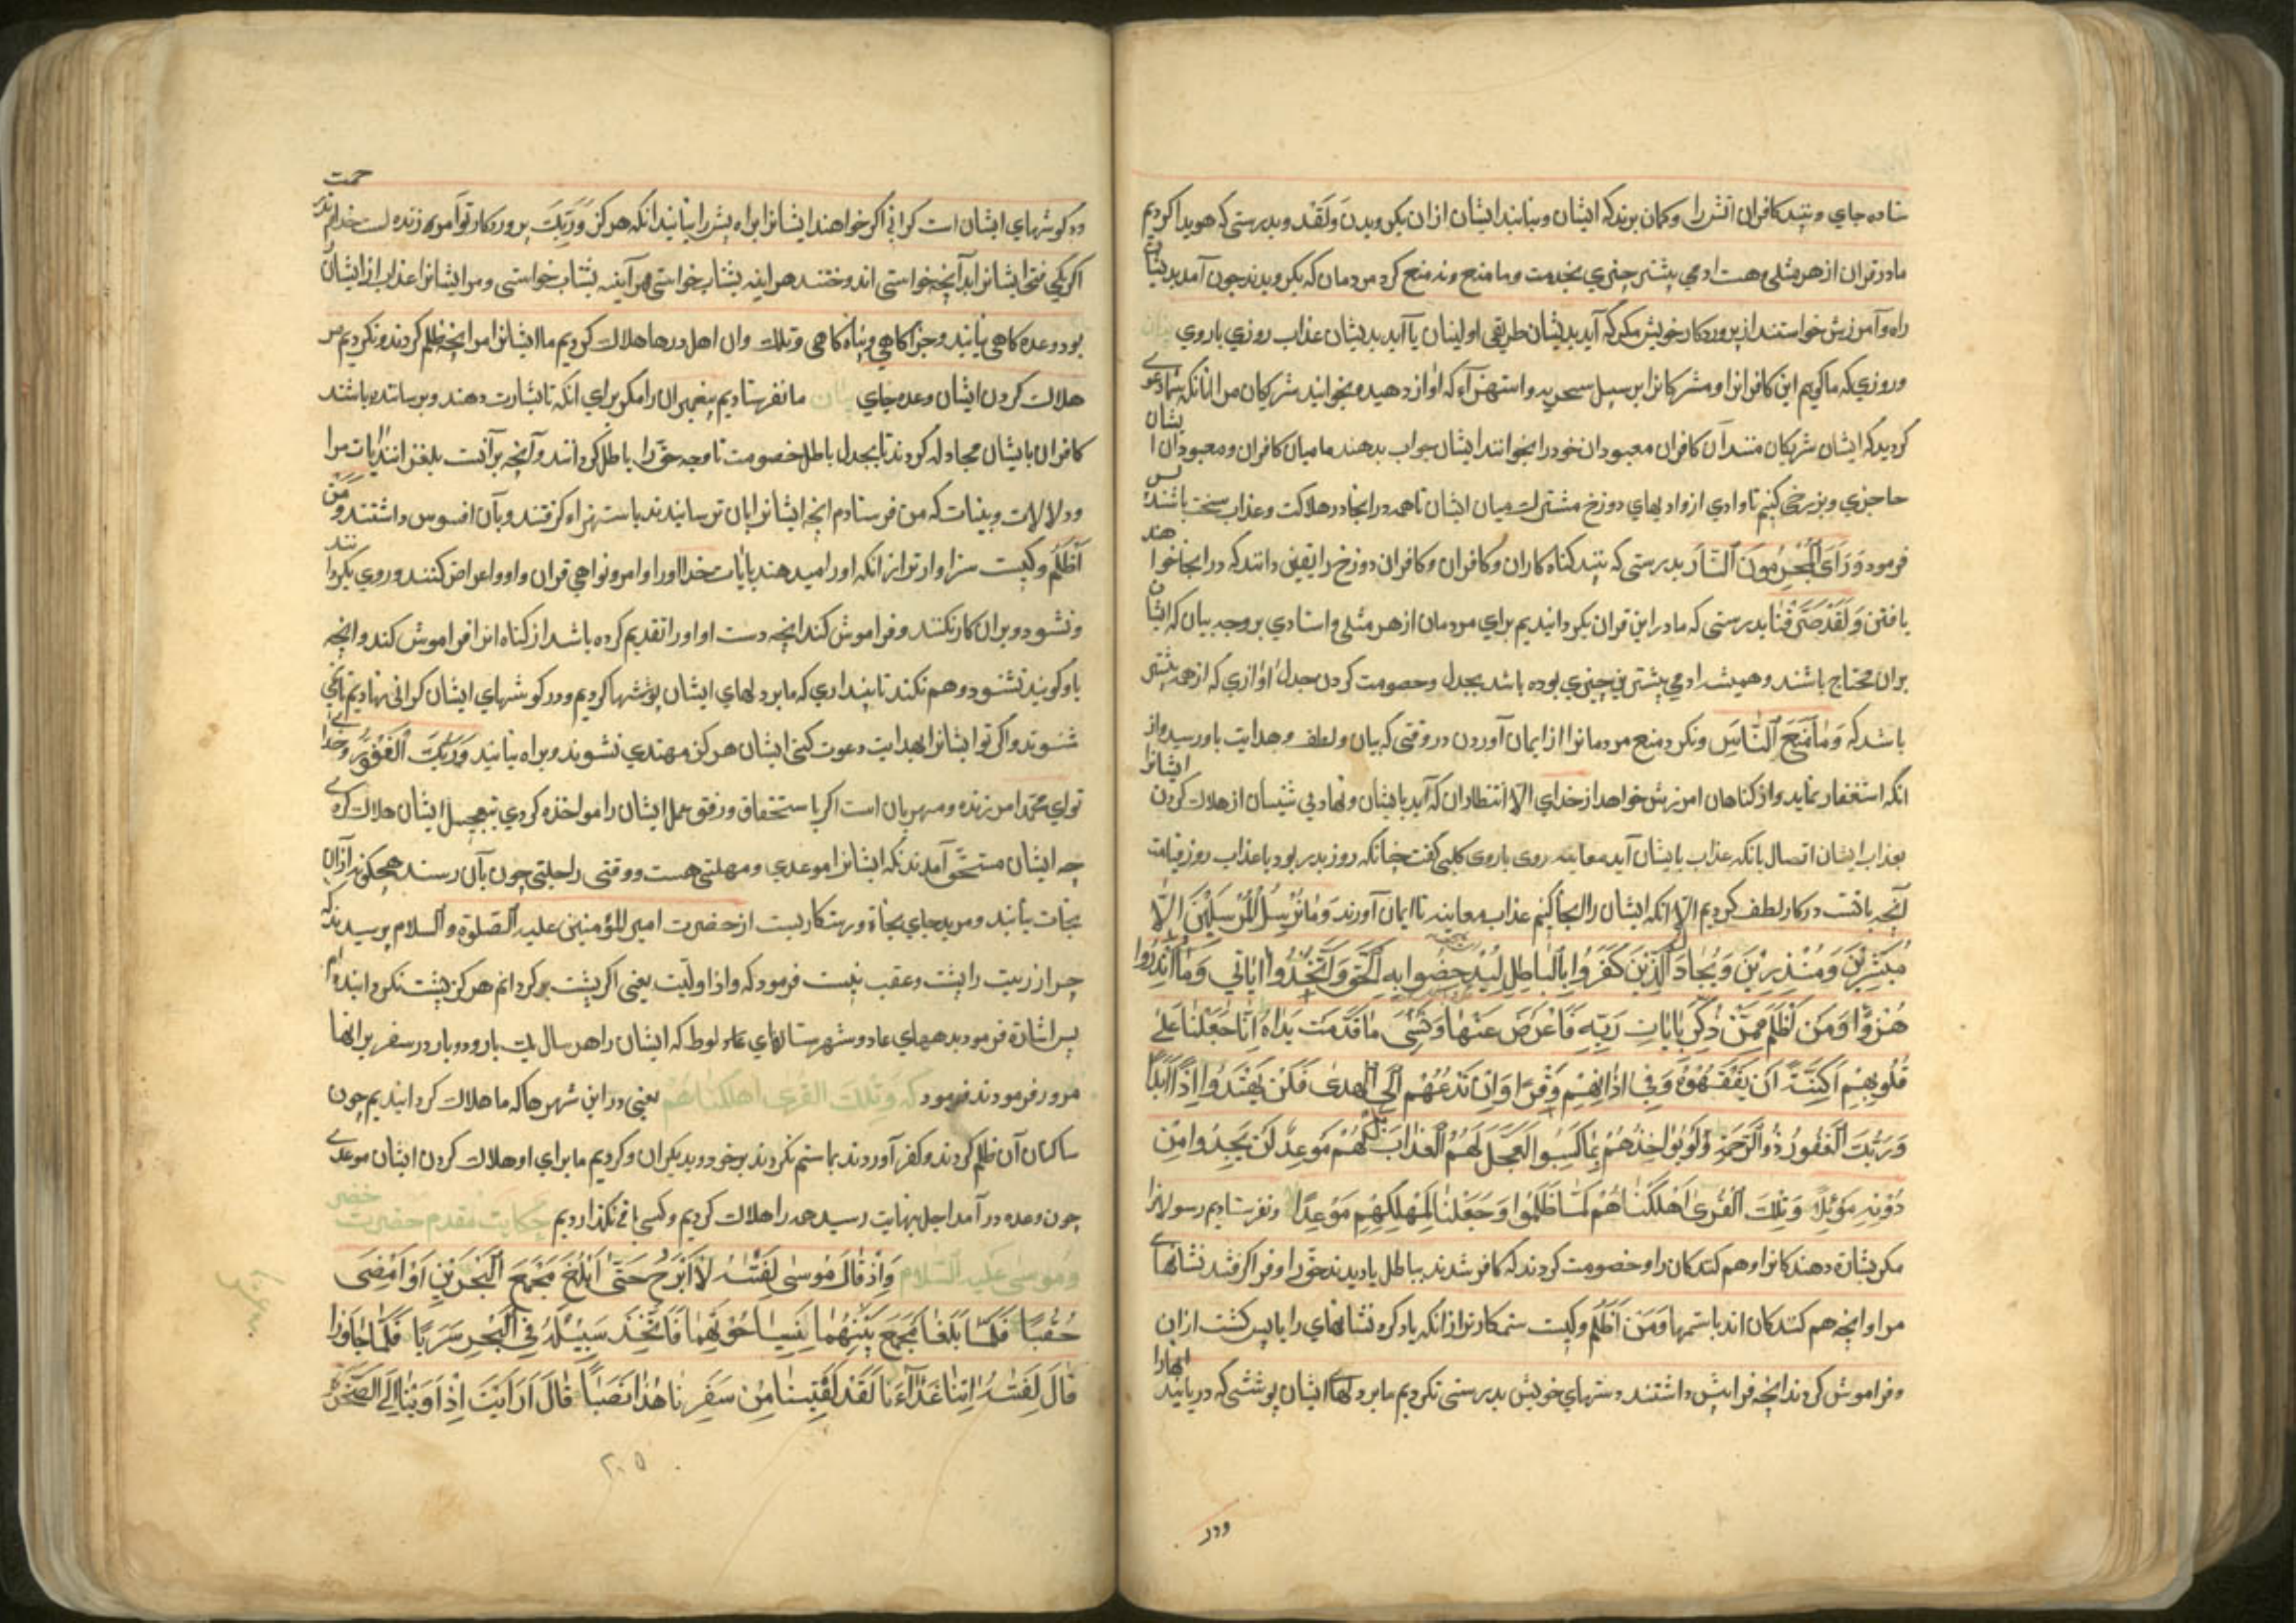 ستاده جاي و بینند کافران آتش را و کمان برند که ایشان و بیابند ایشان ازان بکرویدن وَلَقَد و بدرستی که هویدا کردیم
ما در قران از هر مثلی و هست ادمي بیشتر چیزي بخدمت وما منع و نه منع کرد مردمان که بکرویدند چون آمد بدیشان
راه و آمرزش خواستند از پروردکار خویش مکر که آید بدیشان طریقی اولینان یا آید بدیشان عذاب روزي باروي بیان
وروزي که ما کویم این کافرانرا و مشرکانرا بر سبیل سخریه و استهزاء که آواز دهید و بخوانید شریکان مرا انانکه شما دعوی
کردید که ایشان شریکان منند آن کافران معبودان خود را بخوانند ایشان جواب بدهند ما میان کافران و معبودان ایشان
حاجزي و برزخی کنیم تا وادي از وادیهاي دوزخ مشترک میان ایشان تا همه در انجا در هلاکت و عذاب سخت باشند پس
فرمود وَرَأَى الْمُجْرِمُونَ النَّارَ بدرستی که بینند کناه کاران و کافران و کافران دوزخ را یقین دانند که در انجا خواهند
یافتن وَلَقَدْ صَرَّفْنَا بدرستی که ما در این قران بکردانیدیم براي مردمان از هر مثلی و استادي بر وجه بیان که ایشان
بران محتاج باشند و همیشه ادمي بیشترین چیزي بوده باشد بجدل و خصومت کردن بجدل آوازي که از همه بیشتر
باشد که وَمَا مَنَعَ النَّاسَ ونکرد منع مردمانرا از ایمان آوردن در وقتی که بیان و لطف و هدایت باو رسید و از
انکه استغفار نماید و از کناهان امرزش خواهد از خداي الّا انتظار ان که آید بایشان و نهاد پیشینیان از هلاک کردن ایشانرا
بعذاب ایشان اتصال بانکه عذاب بایشان آید معاینه روی باروی کلبی کفت چنانکه روز بدر بود یا عذاب روز قیامت
آنچه بافت در کار لطف کردیم الّا انکه ایشان را الجا کنیم عذاب معاینه تا ایمان آورند وَمَا نُرْسِلُ الْمُرْسَلِينَ إِلَّا
مُبَشِّرِينَ وَمُنْذِرِينَ وَيُجَادِلُ الَّذِينَ كَفَرُوا بِالْبَاطِلِ لِيُدْحِضُوا بِهِ الْحَقَّ وَاتَّخَذُوا آيَاتِي وَمَا أُنْذِرُوا
هُزُوًا وَمَنْ أَظْلَمُ مِمَّنْ ذُكِّرَ بِآيَاتِ رَبِّهِ فَأَعْرَضَ عَنْهَا وَنَسِيَ مَا قَدَّمَتْ يَدَاهُ إِنَّا جَعَلْنَا عَلَى
قُلُوبِهِمْ أَكِنَّةً أَنْ يَفْقَهُوهُ وَفِي آذَانِهِمْ وَقْرًا وَإِنْ تَدْعُهُمْ إِلَى الْهُدَى فَلَنْ يَهْتَدُوا إِذًا أَبَدًا
وَرَبُّكَ الْغَفُورُ ذُو الرَّحْمَةِ لَوْ يُؤَاخِذُهُمْ بِمَا كَسَبُوا لَعَجَّلَ لَهُمُ الْعَذَابَ بَلْ لَهُمْ مَوْعِدٌ لَنْ يَجِدُوا مِنْ
دُونِهِ مَوْئِلًا وَتِلْكَ الْقُرَى أَهْلَكْنَاهُمْ لَمَّا ظَلَمُوا وَجَعَلْنَا لِمَهْلِكِهِمْ مَوْعِدًا ونفرستادیم رسولانرا
مکر بشارة دهندکانرا و هم کنندکان را و خصومت کردند که کافر شدند بباطل یادیدند حق را و فرا کرفتند نشانهاي
مرا و انچه هم کنندکان اند باستمها وَمَنْ أَظْلَمُ وکیست ستمکارتر از انکه یاد کرد نشانهاي را باپس کشت ازان
و فراموش کردند انچه فراپیش داشتند دستهاي خویش بدرستی نکردیم ما بر دلهاي ایشان پوششی که دریابند انهارا
ودر
ودر کوشهاي ایشان است کرانی اکر خواهند ایشانرا براه پیش را نیابند انکه هرکز وَرَبُّكَ پروردکار تو آمرزنده است خداوند رحمت
اکر بکیرفتی ایشانرا بدآنچه خواستی اندوختند هراینه بشتاب خواستی هر آینه بشتاب خواستی و مر ایشانرا عذاب از ایشان
بود وعده کاهی نیابند و جز اکاهي و پناه کاهی و تلك وان اهل دیرها هلاك کردیم ما ایشانرا مر انچه ظلم کردند ونکردیم مر
هلاك کردن ایشان وعده جاي بیان ما نفرستادیم پیغمبران را مکر براي انکه تا بشارت دهند و ترساننده باشند
کافران بایشان مجادله کردند تا بجدل باطل خصومت تا وجه حق را باطل کردانند و آنچه بر آنست بلغزانند آیات مرا
ودلالات و بینات که من فرستادم انچه ایشانرا بان ترسانیدند باستهزاء کرفتند و بآن افسوس داشتند وَمَنْ
أَظْلَمُ وکیست سزاوارتر از انکه اورا میدهند بآیات خدا اورا و امر و نواهي قران و او اعراض کنند و روي بکردانند
ونشود و بران کار نکنند و فراموش کند انچه دست او اورا تقدیم کرده باشد از کناه انرا فراموش کند و انچه
باو کویند نشنود و هم نکند تا پنداري که ما بر دلهاي ایشان پوششها کردیم و در کوشهاي ایشان کرانی نهادیم تا نمی
شنوند و اکر تو ایشانرا بهدایت دعوت کنی ایشان هرکز مهتدي نشوند و براه نیایند وَرَبُّكَ الْغَفُورُ وخداي
تو اي محمد امرزنده و مهربان است اکر باستحقاق و رفق عمل ایشان را مواخذه کردي تعجیل ایشان هلاك کردي
چه ایشان مستحق آمدند نکه ایشانرا موعدي و مهلتی هست و وقتی را جلبتی چون بآن رسند هیچکونه از ان
نجات نیابند و مریدجاي نجاة و رستکار نیست از حضرت امیر المؤمنین علیه الصلوة والسلام پرسیدند که
چرا زربیت را پشت و عقب نیست فرمود که واذا ولّیت یعنی اکر پشت برکردانم هرکز پشت نکردانیده ام
پس اشارة فرمود بدههاي عاد و شهرستانهاي لوط که ایشان را هر سال یك بار و دو بار در سفر بر انها
مرور فرمودند فرمود که وَتِلْكَ الْقُرَى أَهْلَكْنَاهُمْ یعنی در این شهرها که ما هلاك کردانیدیم چون
ساکنان آن ظلم کردند و کفر آوردند یا ستم نکردند بر خود و بدیکران وکردیم ما براي او هلاك کردن ایشان موعدي
چون وعده در آمد اجل نهایت رسید همه را هلاك کردیم و کسی باقی نکذاردیم حکایت مقدم حضرت خضر
وموسی علیه السلام وَإِذْ قَالَ مُوسَى لِفَتَاهُ لَا أَبْرَحُ حَتَّى أَبْلُغَ مَجْمَعَ الْبَحْرَيْنِ أَوْ أَمْضِيَ
حُقُبًا فَلَمَّا بَلَغَا مَجْمَعَ بَيْنِهِمَا نَسِيَا حُوتَهُمَا فَاتَّخَذَ سَبِيلَهُ فِي الْبَحْرِ سَرَبًا فَلَمَّا جَاوَزَا
قَالَ لِفَتَاهُ آتِنَا غَدَاءَنَا لَقَدْ لَقِينَا مِنْ سَفَرِنَا هَذَا نَصَبًا قَالَ أَرَأَيْتَ إِذْ أَوَيْنَا إِلَى الصَّخْرَةِ
۲۰۵